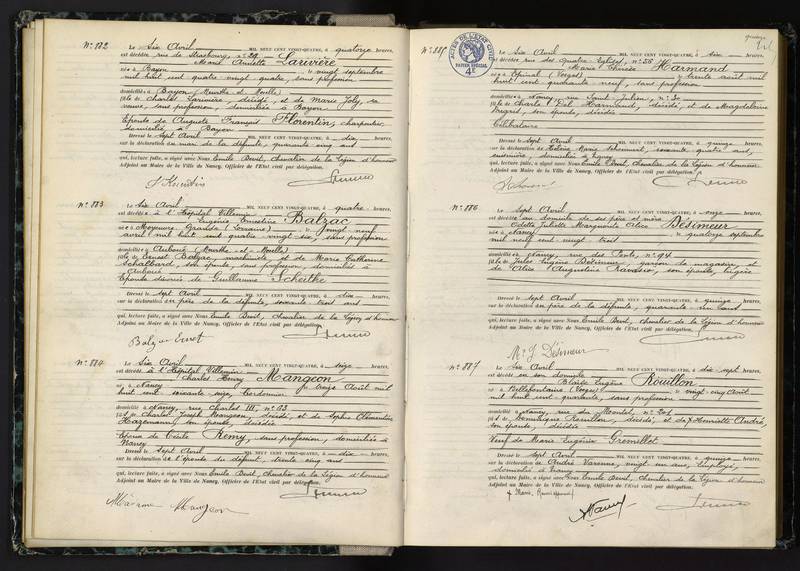 N° 882
Le Six Avril MIL NEUF CENT VINGT-QUATRE, à quatorze heures,
est décédée rue de Strasbourg, n° 29
Marie Larivière
née à Bayon le vingt septembre
mil huit cent quatre vingt quatre, sans profession
domiciliée à Bayon (Meurthe et Moselle)
fille de Charles Larivière, décédé, et de Marie Joly, sa
veuve, sans profession, domiciliée à Bayon
Epouse de Auguste François Florentin, charpentier,
domicilié à Bayon
Dressé le Sept Avril MIL NEUF CENT VINGT-QUATRE, à dix heures,
sur la déclaration du mari de la défunte, quarante cinq ans
qui, lecture faite, a signé avec Nous Emile Chevalier de la Légion d'honneur
Adjoint au Maire de la Ville de Nancy, Officier de l'Etat civil par délégation.
N° 883
Le Six Avril MIL NEUF CENT VINGT-QUATRE, à quatre heures,
est décédée à l'Hôpital Villemin
Eugénie Ernestine Balzac
née à Moyeuvre Grande (Lorraine) le vingt neuf
avril mil huit cent quatre vingt six, sans profession
domiciliée à Auboué (Meurthe et Moselle)
fille de Ernest Balzac, machiniste, et de Marie Catherine
son épouse, sans profession, domiciliés à
Auboué
Epouse divorcée de Guillaume Scheithe
Dressé le sept Avril MIL NEUF CENT VINGT-QUATRE, à dix heures,
sur la déclaration du père de la défunte, soixante trois ans
qui, lecture faite, a signé avec Nous Emile Chevalier de la Légion d'honneur
Adjoint au Maire de la Ville de Nancy, Officier de l'Etat civil par délégation.
Ernest
N° 884
Le Six Avril MIL NEUF CENT VINGT-QUATRE, à seize heures,
est décédé à l'Hôpital Villemin
Charles Henry Mangeon
né à Nancy le onze Août mil
huit cent soixante seize, Cordonnier
domicilié à Nancy, rue Charles III, n° 83
fils de Charles Joseph Mangeon, décédé, et de Sophie Clémentine
Hagemann, son épouse, décédée
Epoux de Cécile Remy, sans profession, domiciliée à
Nancy
Dressé le sept Avril MIL NEUF CENT VINGT-QUATRE, à dix heures,
sur la déclaration de l'épouse du défunt, trente cinq ans
qui, lecture faite, a signé avec Nous Emile Chevalier de la Légion d'honneur
Adjoint au Maire de la Ville de Nancy, Officier de l'Etat civil par délégation.
Mangeon
N° 885
ACTES DE L'ETAT CIVIL
PAPIER SPECIAL
4E
Le Six Avril MIL NEUF CENT VINGT-QUATRE, à dix heures,
est décédée rue des Quatre Eglises, n° 56
Marie Thérèse Harmand
née à Epinal (Vosges) le trente août mil
huit cent quarante neuf, sans profession
domiciliée à Nancy, rue Saint Julien, n° 30
fille de Charles Harmand, décédé, et de Magdeleine
son épouse, décédée
Célibataire
Dressé le Sept Avril MIL NEUF CENT VINGT-QUATRE, à quinze heures,
sur la déclaration de Hélène Marie soixante quatre ans,
domiciliée à Nancy
qui, lecture faite, a signé avec Nous Emile Chevalier de la Légion d'honneur
Adjoint au Maire de la Ville de Nancy, Officier de l'Etat civil par délégation.
N° 886
Le Sept Avril MIL NEUF CENT VINGT-QUATRE, à onze heures,
est décédée au domicile de ses père et mère
Odette Juliette Marguerite Alice Désimeur
née à Nancy le quatorze septembre
mil neuf cent vingt trois
domiciliée à Nancy, rue des Ponts, n° 94
fille de Jules Eugène Désimeur, garçon de magasin, et
de Alice Augustine Ravasio, son épouse, lingère
Dressé le sept Avril MIL NEUF CENT VINGT-QUATRE, à quinze heures,
sur la déclaration du père de la défunte, quarante un ans
qui, lecture faite, a signé avec Nous Emile Chevalier de la Légion d'honneur
Adjoint au Maire de la Ville de Nancy, Officier de l'Etat civil par délégation.
Désimeur
N° 887
Le Six Avril MIL NEUF CENT VINGT-QUATRE, à dix sept heures,
est décédé en son domicile
Blaise Eugène Rouillon
né à Bellefontaine (Vosges) le vingt cinq Août
mil huit cent quarante, sans profession
domicilié à Nancy, rue du Montet, n° 201
fils de Dominique Rouillon, décédé, et de Henriette André,
son épouse, décédée
Veuf de Marie Eugénie Gremillet
Dressé le sept Avril MIL NEUF CENT VINGT-QUATRE, à quinze heures,
sur la déclaration de André Varenne, vingt un ans, employé,
domicilié à Nancy
qui, lecture faite, a signé avec Nous Emile Chevalier de la Légion d'honneur
Adjoint au Maire de la Ville de Nancy, Officier de l'Etat civil par délégation.